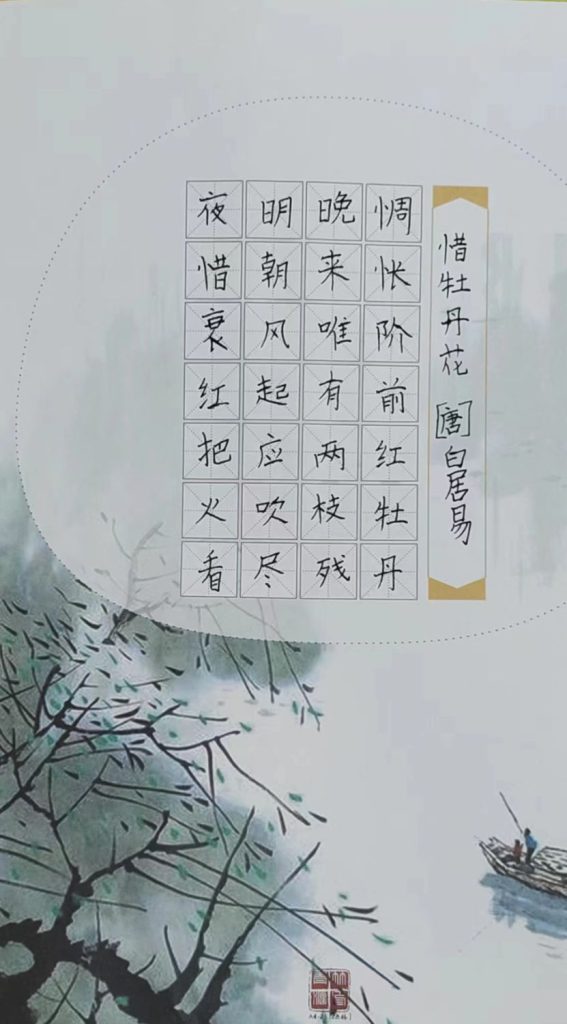 惜牡丹花 [唐]白居易
惆怅阶前红牡丹
晚来唯有两枝残
明朝风起应吹尽
夜惜衰红把火看